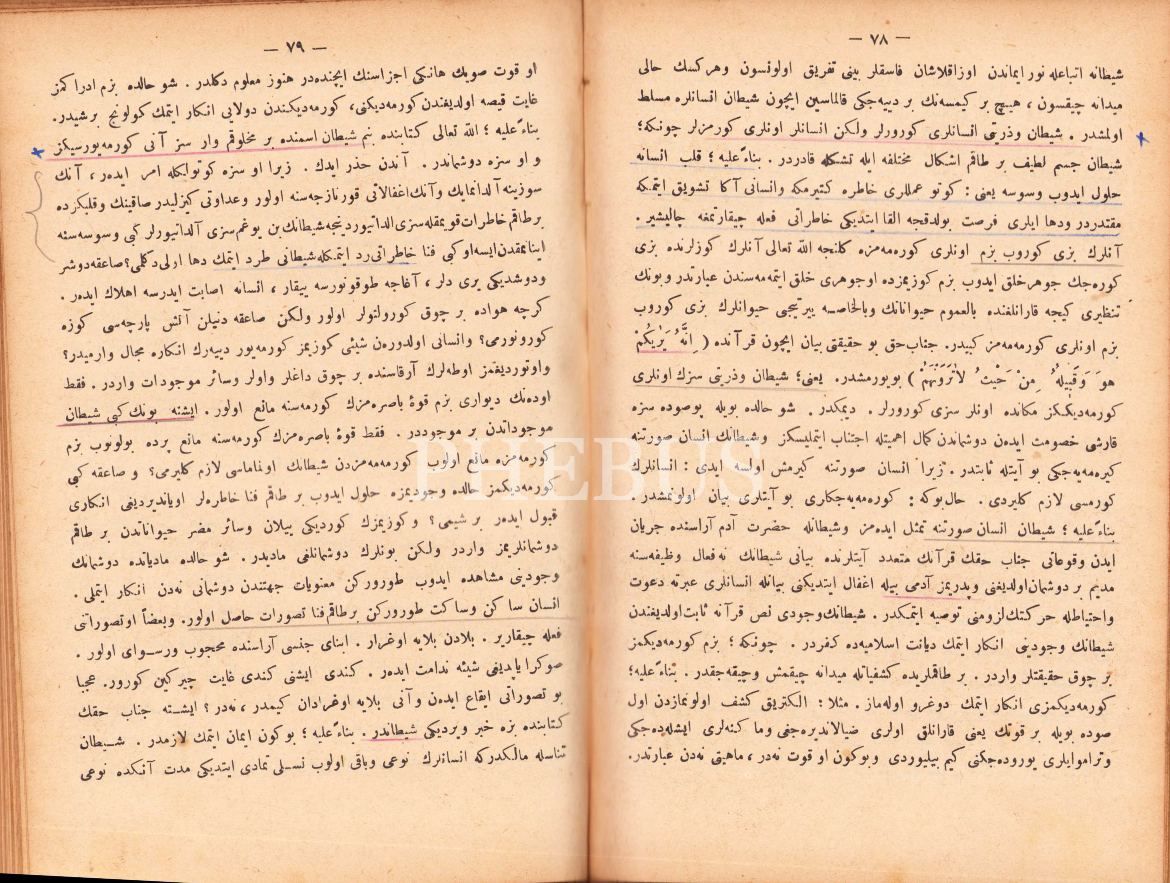 — ٧٨ —
شيطانه اتباعله نور ايماندن اوزاقلاشان فاسقلر بينى تفريق اولونسون وهركسك حالى
ميدانه چيقسون ، هيچ بر كيمسه‌نك بر دييه‌جكى قالماسين ايچون شيطان انسانلره مسلط
اولمشدر . شيطان وذريتى انسانلرى كورورلر ولكن انسانلر اونلرى كورمزلر چونكه؛
شيطان جسم لطيف بر طاقم اشكال مختلفه ايله تشكله قادردر . بناءً عليه ؛ قلب انسانه
حلول ايدوب وسوسه يعنى : كوتو عمللرى خاطره كتيرمكه وانسانى آكا تشويق ايتمكه
مقتدردر ودها ايلرى فرصت بولدقجه القا ايتديكى خاطراتى فعله چيقارتمغه چاليشير .
آنلرك بزى كوروب بزم اونلرى كوره‌مه‌مزه كلنجه الله تعالى آنلرك كوزلرنده بزى
كوره‌جك جوهر خلق ايدوب بزم كوزيمزده اوجوهرى خلق ايتمه‌مه‌سندن عبارتدر وبونك
تنظيرى كيجه قارانلغنده بالعموم حيواناتك وبالخاصه ييرتيجى حيوانلرك بزى كوروب
بزم اونلرى كوره‌مه‌مز كبيدر . جناب حق بو حقيقتى بيان ايچون قرآنده ( اِنَّهُ يَرٰيكُمْ
هُوَ وَقَبِيلُهُ مِنْ حَيْثُ لَاتَرَوْنَهُمْ ) بويورمشدر . يعنى ؛ شيطان وذريتى سزك اونلرى
كورمه‌ديككز مكانده اونلر سزى كورورلر . ديمكدر . شو حالده بويله پوصوده سزه
قارشى خصومت ايدن دوشماندن كمال اهميتله اجتناب ايتمليسكز وشيطانك انسان صورتنه
كيره‌مه‌يه‌جكى بو آيتله ثابتدر . زيرا انسان صورتنه كيرمش اولسه ايدى : انسانلرك
كورمسى لازم كليردى . حال بوكه : كوره‌مه‌يه‌جكلرى بو آيتلرى بيان اولونمشدر .
بناءً عليه ؛ شيطان انسان صورتنه تمثل ايده‌مز وشيطانله حضرت آدم آراسنده جريان
ايدن وقوعاتى جناب حقك قرآنك متعدد آيتلرنده بيانى شيطانك نه فعال وظيفه‌سنه
مديم بر دوشمان اولديغنى وپدريمز آدمى بيله اغفال ايتديكنى بيانله انسانلرى عبرته دعوت
واحتياطله حركتك لزومنى توصيه ايتمكدر . شيطانك وجودى نص قرآنه ثابت اولديغندن
شيطانك وجودينى انكار ايتمك ديانت اسلاميه‌ده كفردر . چونكه ؛ بزم كورمه‌ديكمز
بر چوق حقيقتلر واردر . بر طاقملرنده كشفياتله ميدانه چيقمش وچيقه‌جقدر . بناءً عليه؛
كورمه‌ديكمزى انكار ايتمك دوغرو اوله‌ماز . مثلا : الكتريق كشف اولونمازدن اول
صوده بويله بر قوتك يعنى قارانلق اولرى ضيالانديره‌جغنى وماكنه‌لرى ايشله‌ده‌جكى
وتراموايلرى يوروده‌جكنى كيم بيليوردى وبوكون او قوت نه‌در ، ماهيتى نه‌دن عبارتدر.
— ٧٩ —
او قوت صويك هانكى اجزاسنك ايچنده‌در هنوز معلوم دكلدر . شو حالده بزم ادراكمز
غايت قيصه اولديغندن كورمه‌ديكنى، كورمه‌ديكندن دولايى انكار ايتمك كولونج برشيدر.
بناءً عليه ؛ الله تعالى كتابنده بنم شيطان اسمنده بر مخلوقم وار سز آنى كورمه‌يورسيكز
و او سزه دوشماندر . آندن حذر ايدك . زيرا او سزه كوتولكله امر ايده‌ر ، آنك
سوزينه آلدانمايك وآنك اغفالاتى قورنازجه‌سنه اولور وعداوتى كيزليدر صاقينك وقلبكزده
بر طاقم خاطرات قويمقله سزى الداتيور دينجه شيطانك بن يوغم سزى آلداتيورلر كبى وسوسه‌سنه
اينانمقدن ايسه او كبى فنا خاطراتى رد ايتمكله شيطانى طرد ايتمك دها اولى دكلمى؟ صاعقه دوشر
ودوشديكى يرى دلر ، آغاجه طوقونورسه ييقار ، انسانه اصابت ايدرسه اهلاك ايده‌ر .
كرچه هواده بر چوق كورولتولر اولور ولكن صاعقه دنيلن آتش پارچه‌سى كوزه
كورونورمى؟ وانسانى اولدورن شيئى كوزيمز كورمه‌يور دييه‌رك انكاره مجال وارميدر؟
واوتورديقمز اوطه‌لرك آرقاسنده بر چوق داغلر واولر وسائر موجودات واردر . فقط
اوده‌نك ديوارى بزم قوهٔ باصره‌مزك كورمه‌سنه مانع اولور . ايشته بونك كبى شيطان
موجوداتدن بر موجوددر . فقط قوهٔ باصره‌مزك كورمه‌سنه مانع پرده بولونوب بزم
كورمه‌مزه مانع اولوب كوره‌مه‌مه‌مزدن شيطانك اولماماسى لازم كليرمى؟ و صاعقه كبى
كورمه‌ديكمز حالده وجوديمزه حلول ايدوب بر طاقم فنا خاطره‌لر اوياندرديغنى انكارى
قبول ايده‌ر بر شيمى ؟ وكوزيمزك كورديكى ييلان وسائر مضر حيواناتدن بر طاقم
دوشمانلريمز واردر ولكن بونلرك دوشمانلغى ماديدر . شو حالده مادياتده دوشمانك
وجودينى مشاهده ايدوب طوروركن معنويات جهتندن دوشمانى نه‌دن انكار ايتملى .
انسان ساكن وساكت طوروركن بر طاقم فنا تصورات حاصل اولور. وبعضاً او تصوراتنى
فعله چيقارير . بلادن بلايه اوغرار . ابناى جنسى آراسنده محجوب ورسواى اولور .
صوكرا ياپديغى شيئه ندامت ايده‌ر . كندى ايشنى كندى غايت چيركين كورور. عجبا
بو تصوراتى ايقاع ايدن وآنى بلايه اوغرادان كيمدر ، نه‌در ؟ ايشته جناب حقك
كتابنده بزه خبر ويرديكى شيطاندر. بناءً عليه ؛ بوكون ايمان ايتمك لازمدر . شيطان
تناسله مالكدركه انسانلرك نوعى وباقى اولوب نسلى تمادى ايتديكى مدت آنكده نوعى
PHEBUS